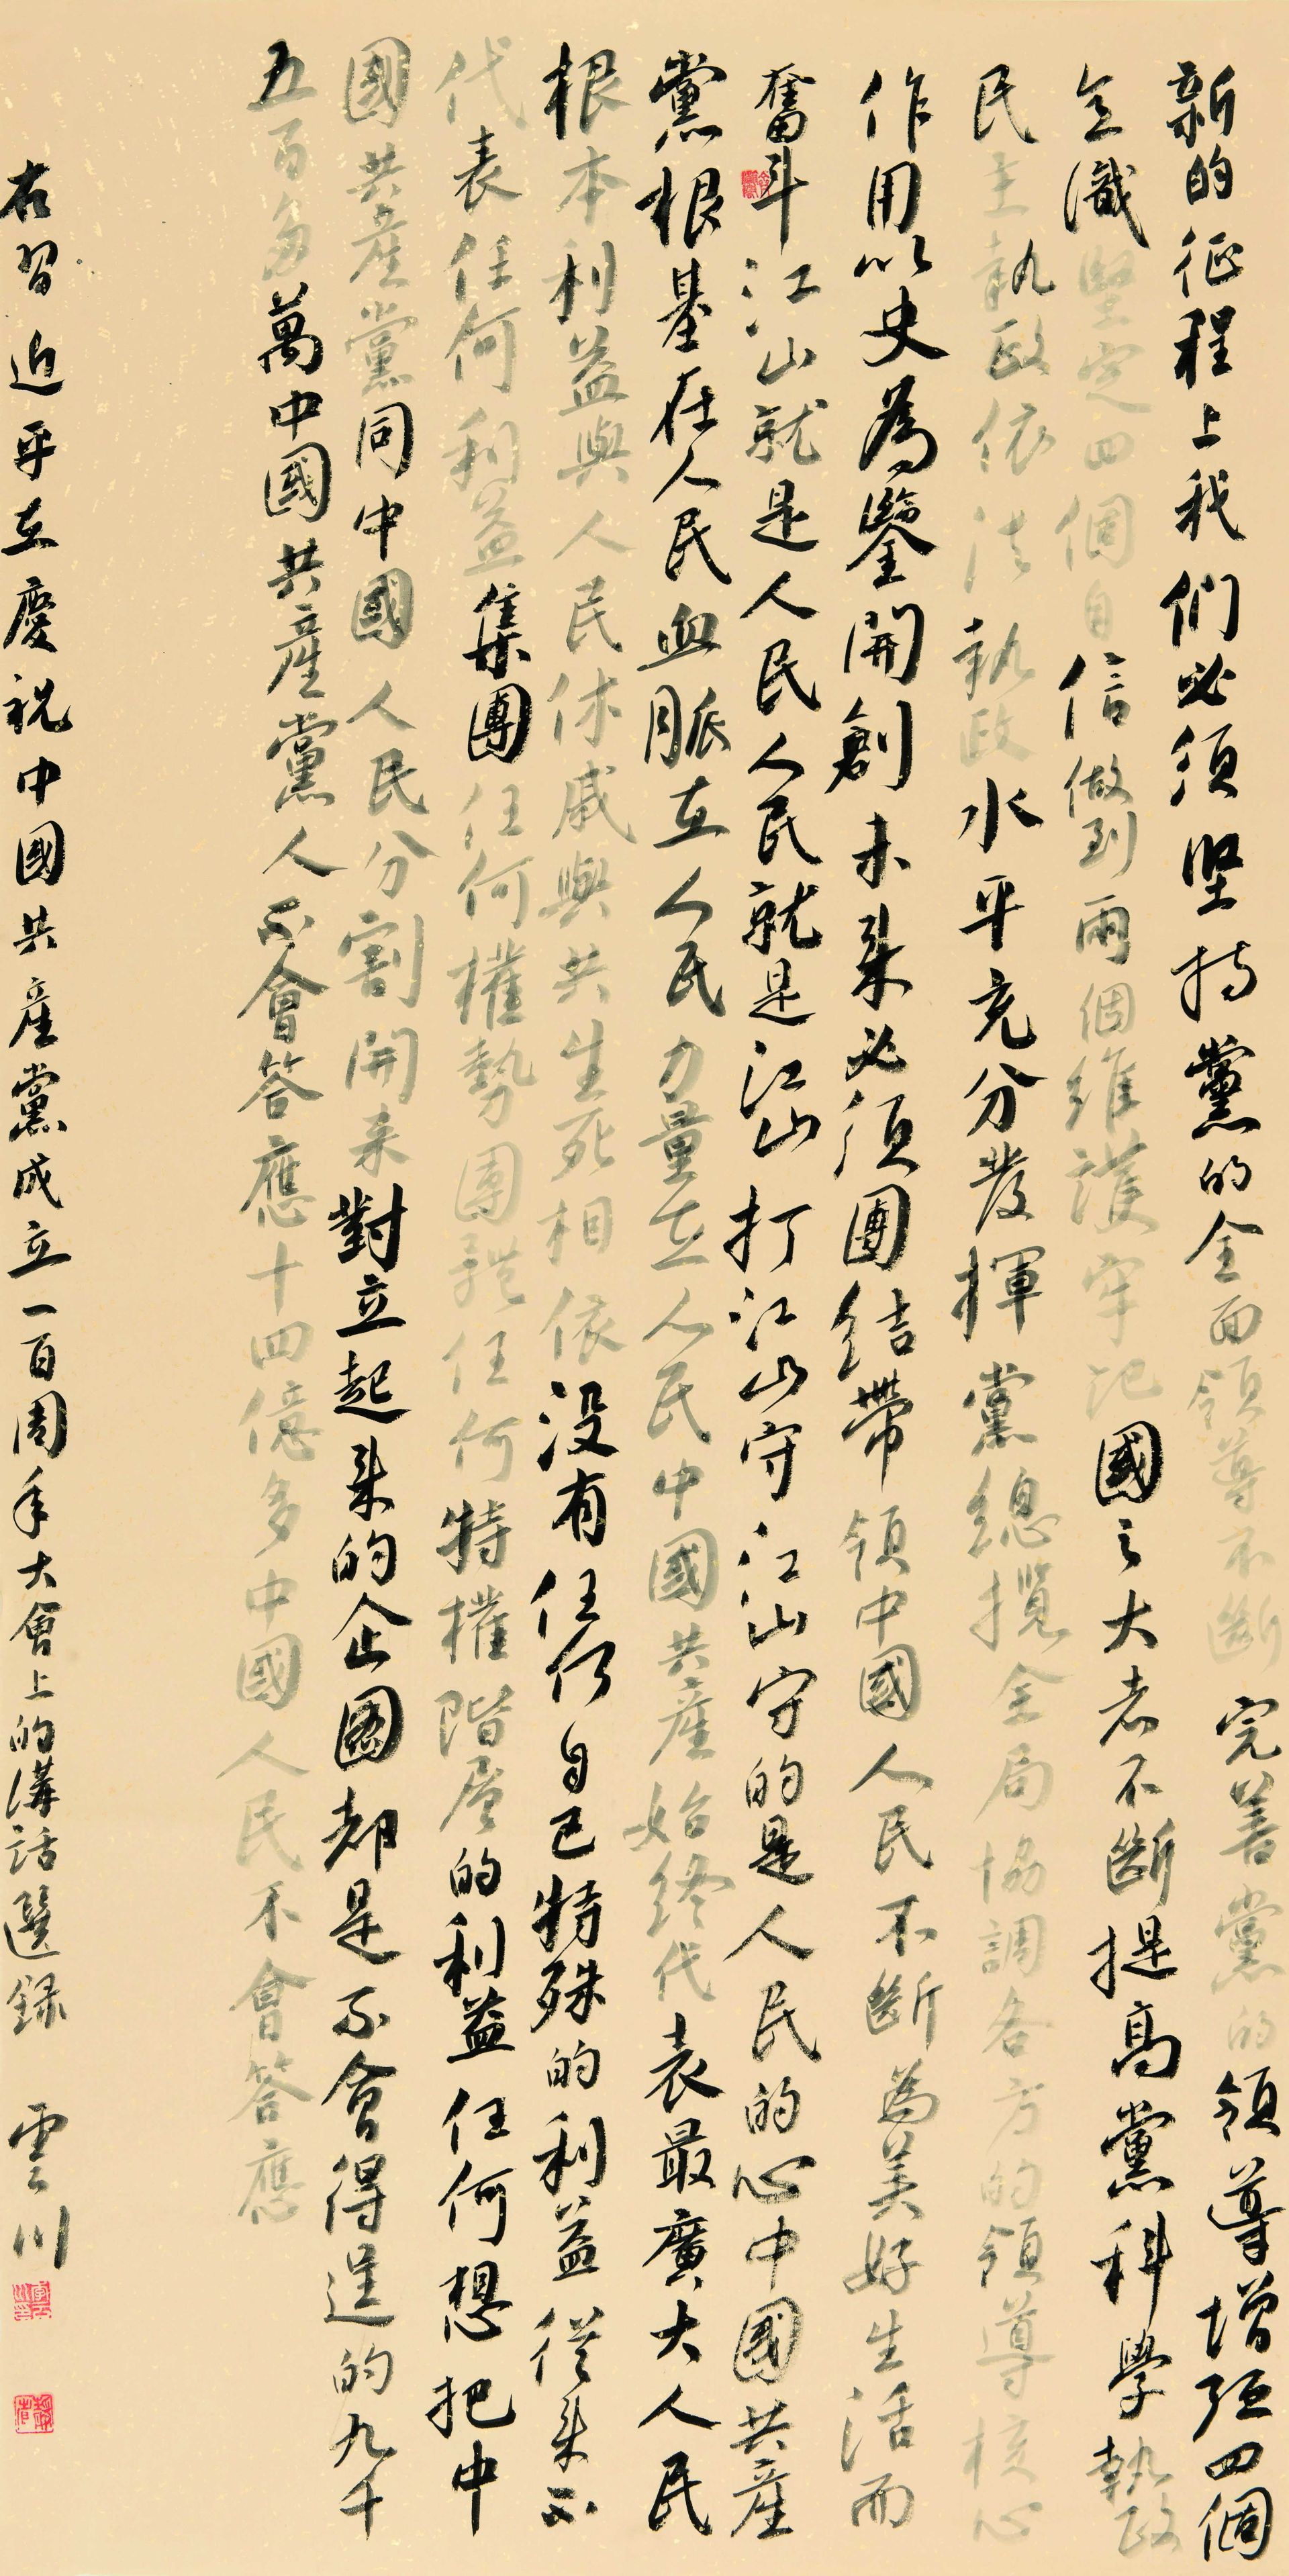 新的征程上我們必須堅持黨的全面領導不斷完善黨的領導增强四個
意識堅定四個自信做到兩個維護牢記國之大者不斷提高黨科學執政
民主執政依法執政水平充分發揮黨總攬全局協調各方的領導核心
作用以史為鑒開創未来必須團结帶領中國人民不斷為美好生活而
奮斗江山就是人民人民就是江山打江山守江山守的是人民的心中國共産
黨根基在人民血脈在人民力量在人民中國共産始终代表最廣大人民
根本利益與人民休戚與共生死相依没有任何自己特殊的利益從来不
代表任何利益集團任何權勢團體任何特權階層的利益任何想把中
國共産黨同中國人民分割開来對立起来的企圖都是不會得逞的九千
五百多萬中國共産黨人不會答應十四億多中國人民不會答應
右習近平在慶祝中國共産黨成立一百周年大會上的講話選録 雲川